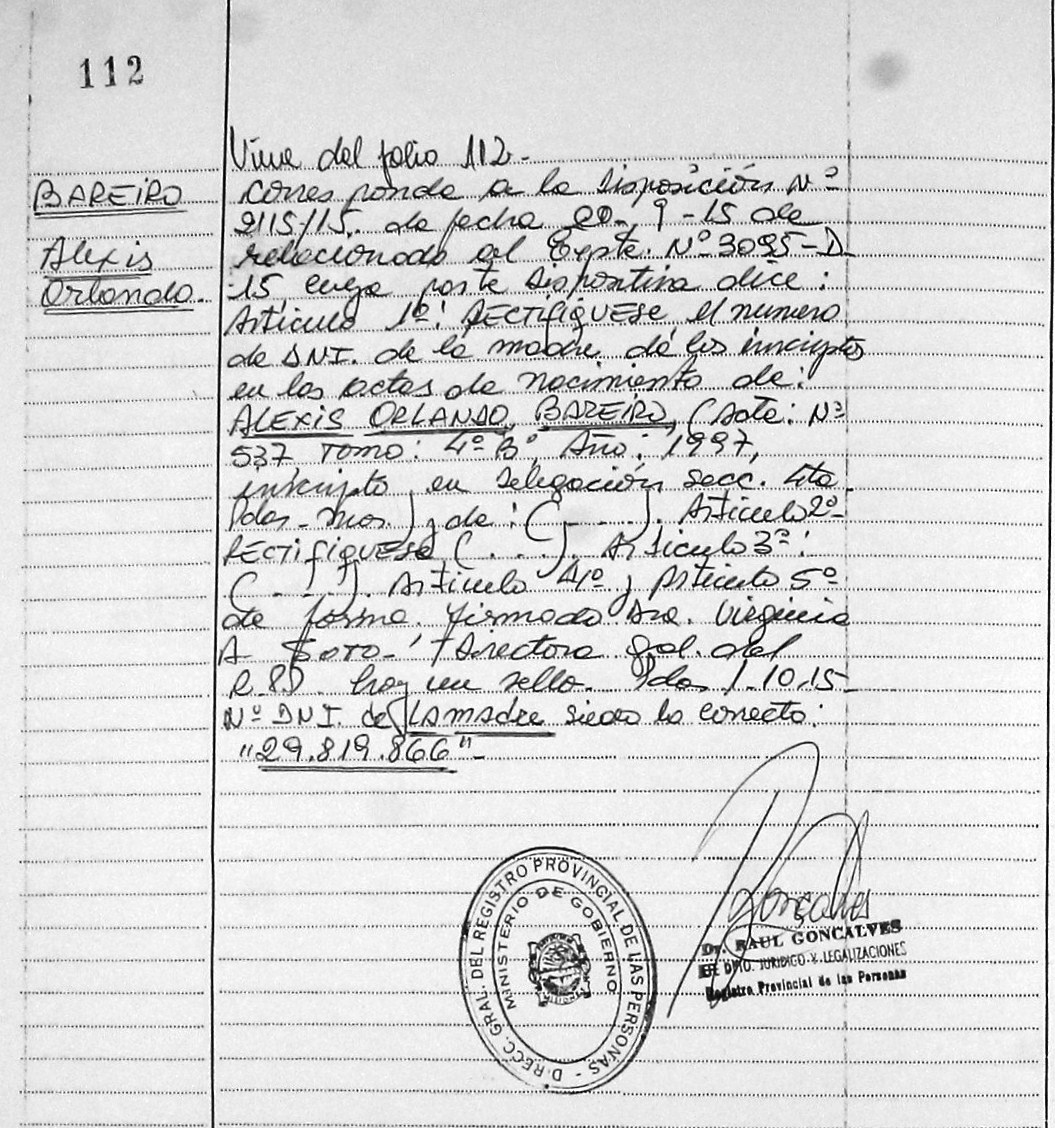 112
BAREIRO
Alexis
Orlando.
Viene del folio 112.-
corresponde a la Disposición Nº
2115/15. de fecha 9-15 de
relacionado al Expte. Nº 3095-D-
15 cuya parte Dispositiva dice:
Artículo 1º: RECTIFIQUESE el numero
de DNI. de la madre de los inscriptos
en las actas de nacimiento de:
ALEXIS ORLANDO BAREIRO, (Acta: Nº
537 Tomo: 4º Bº, Año: 1997,
inscripto en Delegación Secc. 4ta
Pdas-Mnes.) y de: (....). Artículo 2º-
RECTIFIQUESE (....). Artículo 3º:
(....). Artículo 4º y Artículo 5º
de forma. Firmado Dra. Virginia
A SOTO- Directora Gral. del
R.P.P. hay un sello. Pdas, 1.10.15-
Nº DNI. de LA MADRE siendo lo correcto:
"29.819.866"-
DIRECC. GRAL. DEL REGISTRO PROVINCIAL DE LAS PERSONAS -
MINISTERIO DE GOBIERNO
MISIONES
Dr. RAUL GONCALVES
JEFE DPTO. JURIDICO Y LEGALIZACIONES
Registro Provincial de las Personas